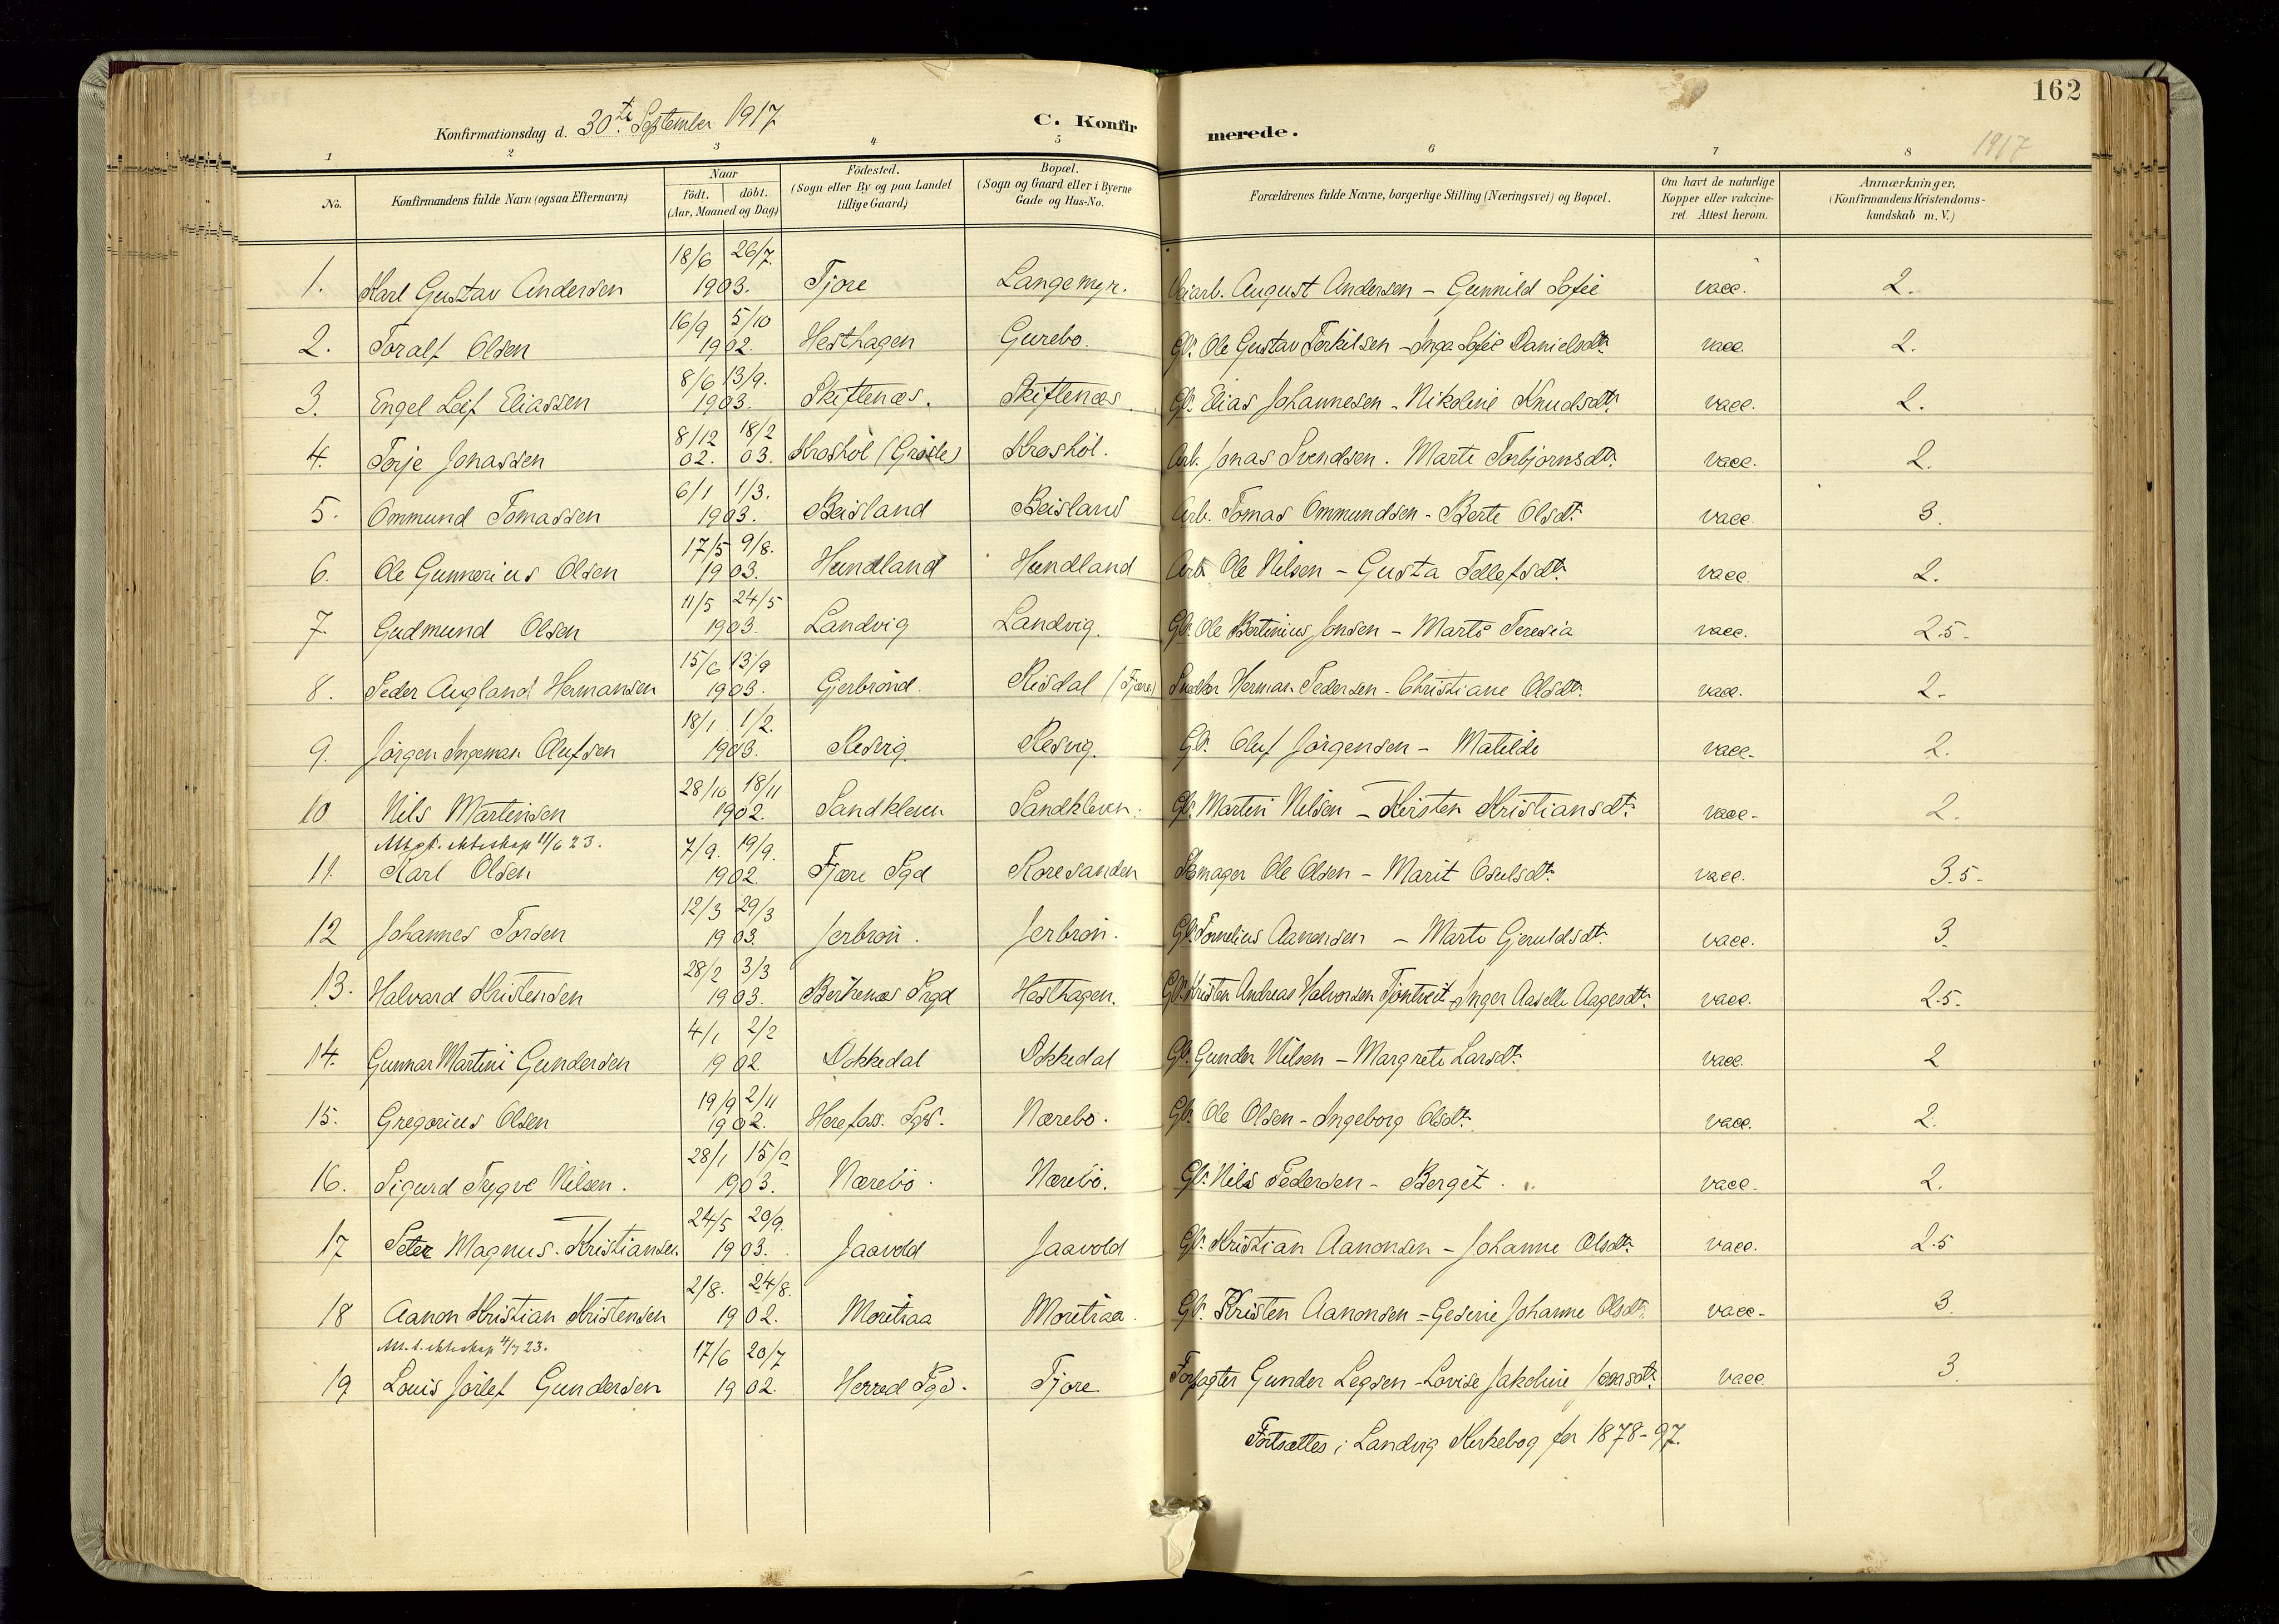 162
Konfirmationsdag d. 30te September 1917
C. Konfirmerede.
1917
1 2 3 4 5 6 7 8
No.
Konfirmandens fulde Navn (ogsaa Efternavn)
Naar
födt. döbt.
(Aar, Maaned og Dag)
Födested.
(Sogn eller By og paa Landet
tillige Gaard)
Bopæl.
(Sogn og Gaard eller i Byerne
Gade og Hus-No.
Forældrenes fulde Navne, borgerlige Stilling (Næringsvei) og Bopæl.
Om havt de naturlige
Kopper eller vakcine-
ret. Attest herom.
Anmærkninger,
(Konfirmandens Kristendoms-
kundskab m. V.)
18/6 26/7.
1. Karl Gustav Andersen 1903. Tjore Langemyr. Veiarb. August Andersen - Gunnild Sofie vacc. 2.
16/9 5/10
2. Toralf Olsen 1902. Hesthagen Gurebo. Gbr. Ole Gustav Terkilsen - Inga Sofie Danielsdtr. vacc. 2.
8/6 13/9.
3. Engel Leif Eliassen 1903. Skiftenæs. Skiftenæs. Gbr. Elias Johannesen - Nikoline Knudsdtr. vacc. 2.
8/12 18/2
4. Torje Jonassen 02. 03. Kroshöl Kroshöl. Arb. Jonas Svendsen. Marte Torbjørnsdtr. vacc. 2.
6/1 1/3.
5. Ommund Tomassen 1903. Beisland Beisland Arb. Tomas Ommundsen - Berte Olsdtr. vacc 3.
17/5 9/8.
6. Ole Gunnerius Olsen 1903. Hundland Hundland Arb Ole Nilsen - Gusta Tellefsdtr. vacc 2.
11/5 24/5
7. Gudmund Olsen 1903. Landvig Landvig. Gbr. Ole Bertinius Jonsen - Marte Teresia vacc. 2.5-
15/6 13/9
8. Peder Augland Hermansen 1903. Gjerbrönd. Risdal (Fjære) Snedker Herman Pedersen - Christiane Olsdtr. vacc. 2.
18/1 1/2.
9. Jörgen Ingeman Olufsen 1903. Resvig. Resvig. Gbr. Oluf Jörgensen - Matilde vacc. 2.
28/10 18/11
10 Nils Martinsen 1902. Sandkleven Sandkleven. Gbr. Martin Nilsen - Kirsten Kristiansdtr. vacc- 2.
11/6 23. 7/9. 19/9.
11. Karl Olsen 1902. Fjære Pgd Roresanden Skomager Ole Olsen - Marit Osulsdtr. vacc. 3.5-
12/3 29/3
12 Johannes Torsen 1903. Jerbrön. Jerbrön. Gbr. Tornelius Aanonsen - Marte Gjeruldsdtr. vacc. 3.
28/2 3/3
13. Halvard Kristensen 1903. Birkenæs Prgd Hesthagen. Gbr. Kristen Andreas Halvorsen Tjöntveit - Inger Aaselle Aagesdtr. vacc. 2.5-
4/1 2/2
14. Gunnar Martini Gundersen 1902. Dokkedal Dokkedal Gbr. Gunder Nilsen - Margrete Larsdtr. vacc. 2
19/9 2/11
15. Gregorius Olsen 1902. Herefoss. Pgd. Nærebo. Gbr. Ole Olsen - Ingeborg Olsdtr. vacc. 2.
28/1
16. Sigurd Trygve Nilsen. 1903. Nærebö. Nærebö. Gbr. Nils Pedersen - Berget. vacc. 2.
24/5 20/9.
17 Peter Magnus. Kristiansen. 1903. Jaavold Jaavold Gbr. Kristian Aanonsen - Johanne Olsdtr. vacc. 2.5
2/8. 24/8.
18 Aanon Kristian Kristensen 1902. Moretraa Moretraa. Gbr. Kristen Aanonsen - Gesine Johanne Olsdtr. vacc- 3.
23. 17/6 20/7
19 Louis Jörlef Gundersen 1902. Herred Pgd. Tjore Forpagter Gunder Legsen - Lovise Jakoline Jensdtr. vacc 3.
Fortsættes i Landvig Kirkebog for 1878-97.